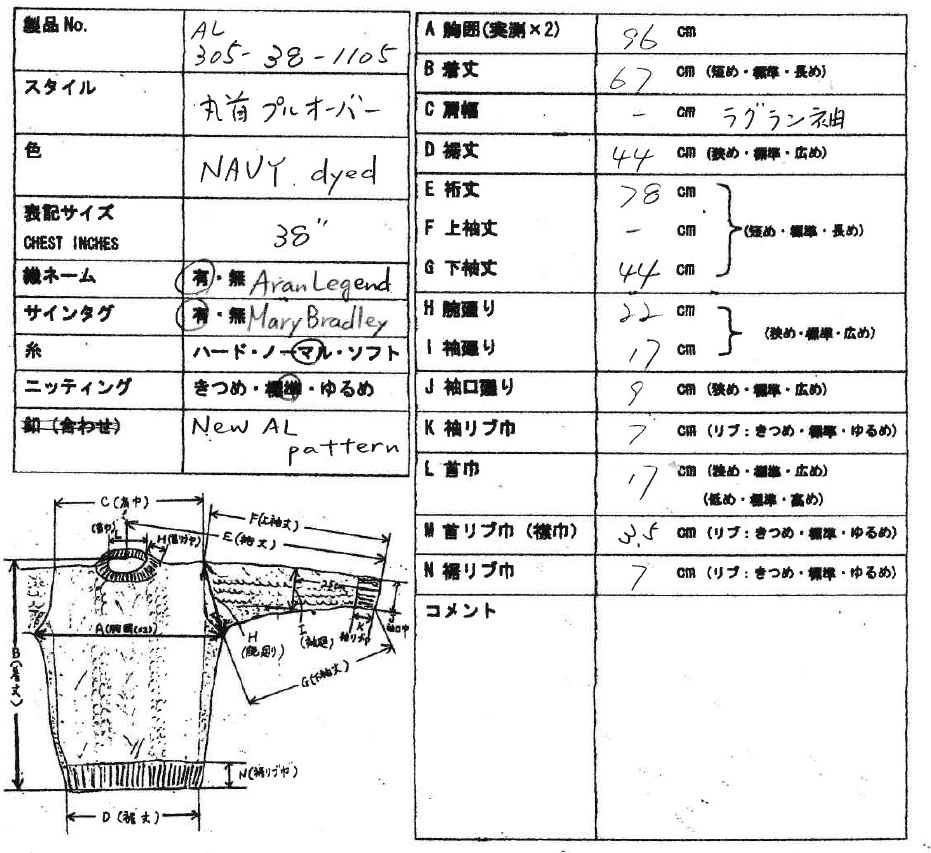 製品No.
AL
305-38-1105
スタイル
丸首プルオーバー
色
NAVY. dyed
表記サイズ
CHEST INCHES
38"
織ネーム 有・無 Aran Legend
サインタグ 有・無 Mary Bradley
糸 ハード・ノーマル・ソフト
ニッティング きつめ・標準・ゆるめ
釦(合わせ) New AL
pattern
A 胸囲(実測×2) 96 cm
B 着丈 67 cm (短め・標準・長め)
C 肩幅 - cm ラグラン袖
D 裾丈 44 cm (狭め・標準・広め)
E 裄丈 78 cm
F 上袖丈 - cm (短め・標準・長め)
G 下袖丈 44 cm
H 腕廻り 22 cm
(狭め・標準・広め)
I 袖廻り 17 cm
J 袖口廻り 9 cm (狭め・標準・広め)
K 袖リブ巾 7 cm (リブ:きつめ・標準・ゆるめ)
L 首巾 17 cm (狭め・標準・広め)
(低め・標準・高め)
M 首リブ巾(襟巾) 3.5 cm (リブ:きつめ・標準・ゆるめ)
N 裾リブ巾 7 cm (リブ:きつめ・標準・ゆるめ)
コメント
C(肩巾)
F(上袖丈)
E(裄丈)
L
(首巾)
A(胸囲(×2))
B(着丈)
H
(腕廻り)
I
(袖廻)
K
袖リブ巾
J
袖口巾
G(下袖丈)
N(裾リブ巾)
D(裾丈)